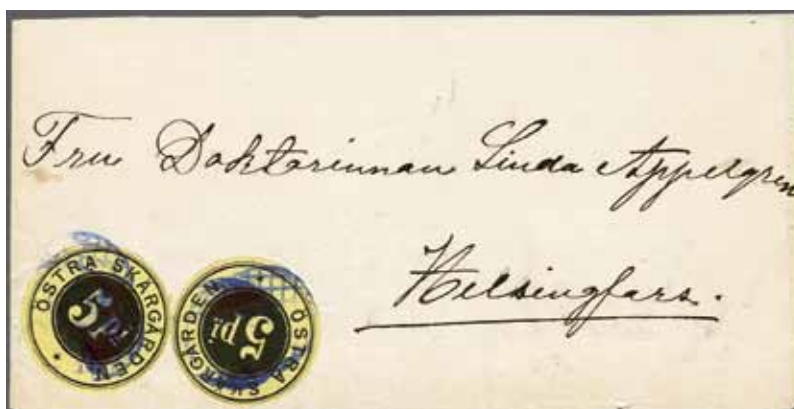 Fru Doktorinnan Linda Appelgren
Helsingfors.
ÖSTRA SKÄRGÅRDEN
5 pi.
ÖSTRA SKÄRGÅRDEN
5 pi.